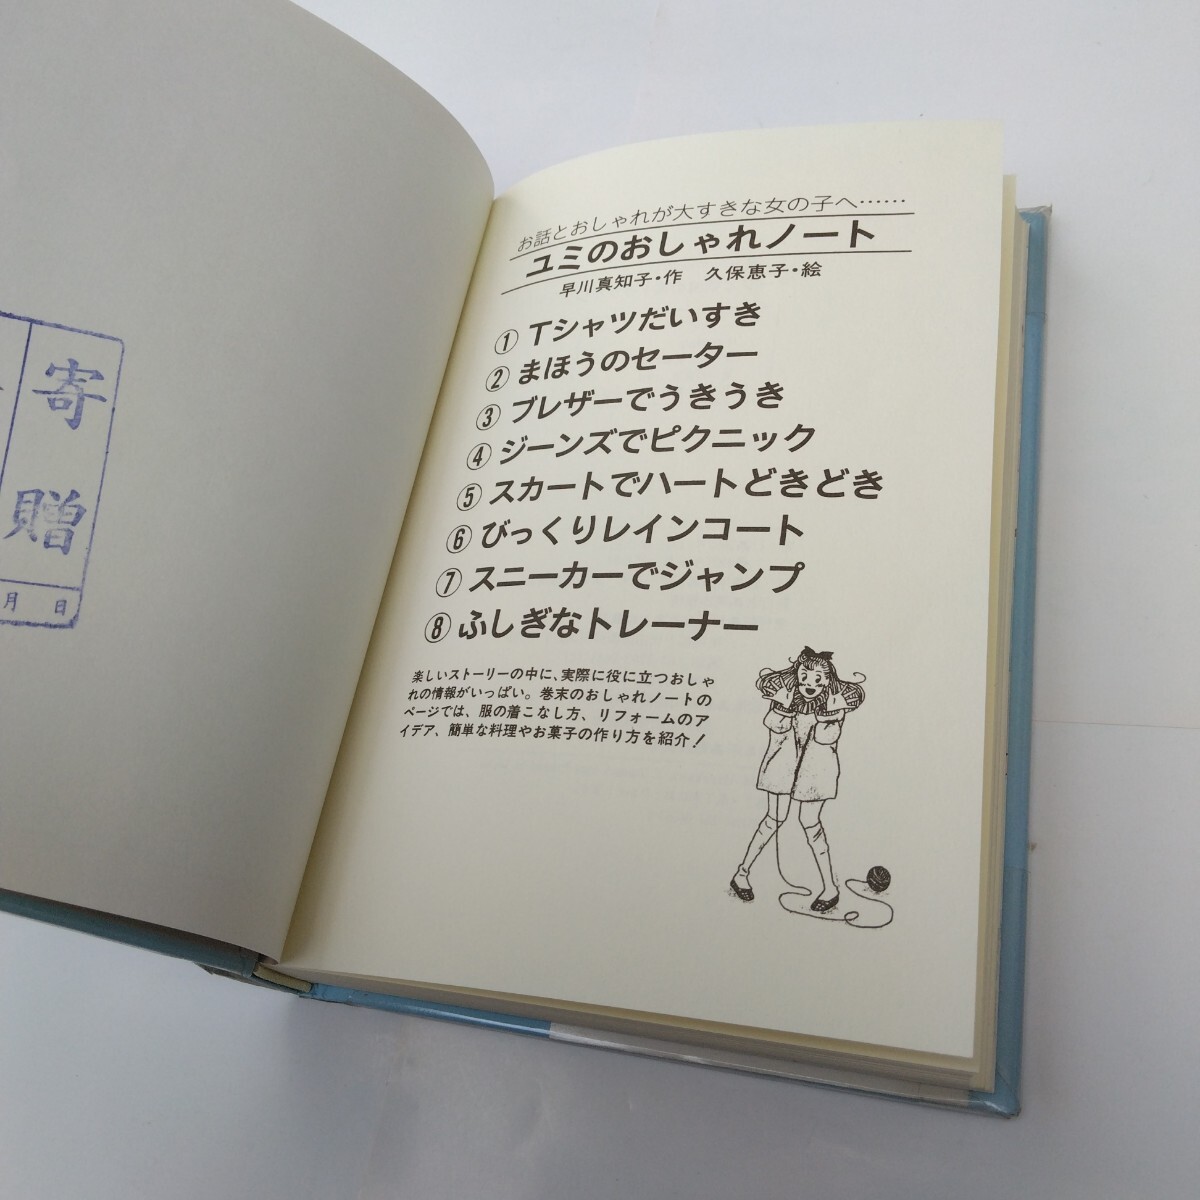 寄贈
月 日
お話とおしゃれが大すきな女の子へ……
ユミのおしゃれノート
早川真知子・作 久保恵子・絵
① Tシャツだいすき
② まほうのセーター
③ ブレザーでうきうき
④ ジーンズでピクニック
⑤ スカートでハートどきどき
⑥ びっくりレインコート
⑦ スニーカーでジャンプ
⑧ ふしぎなトレーナー
楽しいストーリーの中に、実際に役に立つおしゃ
れの情報がいっぱい。巻末のおしゃれノートの
ページでは、服の着こなし方、リフォームのア
イデア、簡単な料理やお菓子の作り方を紹介！